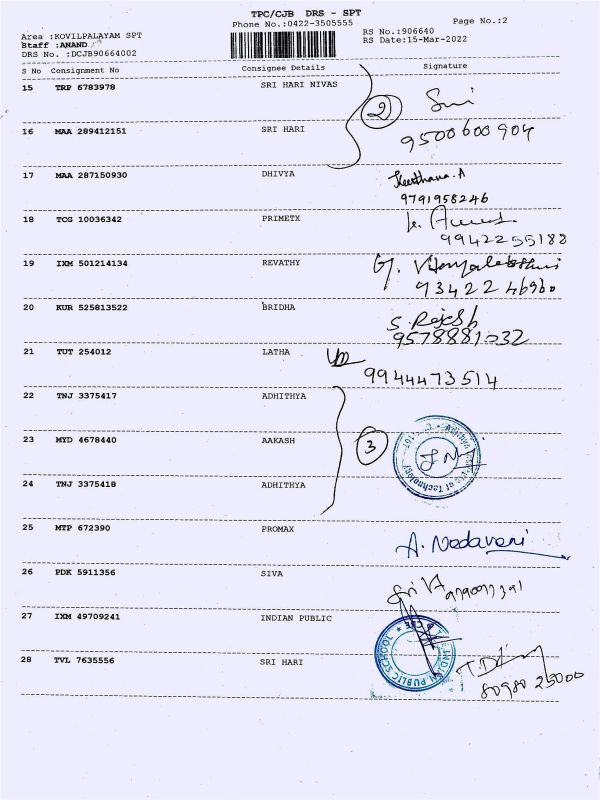 TPC/CJB DRS - SPT
Phone No.:0422-3505555
Page No.:2
Area :KOVILPALAYAM SPT
Staff :ANAND
DRS No. :DCJB90664002
RS No.:906640
RS Date:15-Mar-2022
S No Consignment No Consignee Details Signature
15 TRP 6783978 SRI HARI NIVAS
2
16 MAA 289412151 SRI HARI 9500600904
17 MAA 287150930 DHIVYA Keerthana. A
9791958246
18 TCG 10036342 PRIMETX
9942255188
19 IXM 501214134 REVATHY G. Vijayalakshmi
93422 46960
20 KUR 525813522 BRIDHA S. Rajesh
9578881032
21 TUT 254012 LATHA
9944473514
22 TNJ 3375417 ADHITHYA
23 MYD 4678440 AAKASH 3
of Technology
24 TNJ 3375418 ADHITHYA
25 MTP 672390 PROMAX A. Nadavani
26 PDK 5911356 SIVA
27 IXM 49709241 INDIAN PUBLIC
INDIAN PUBLIC SCHOOL
28 TVL 7635556 SRI HARI
80980 25000